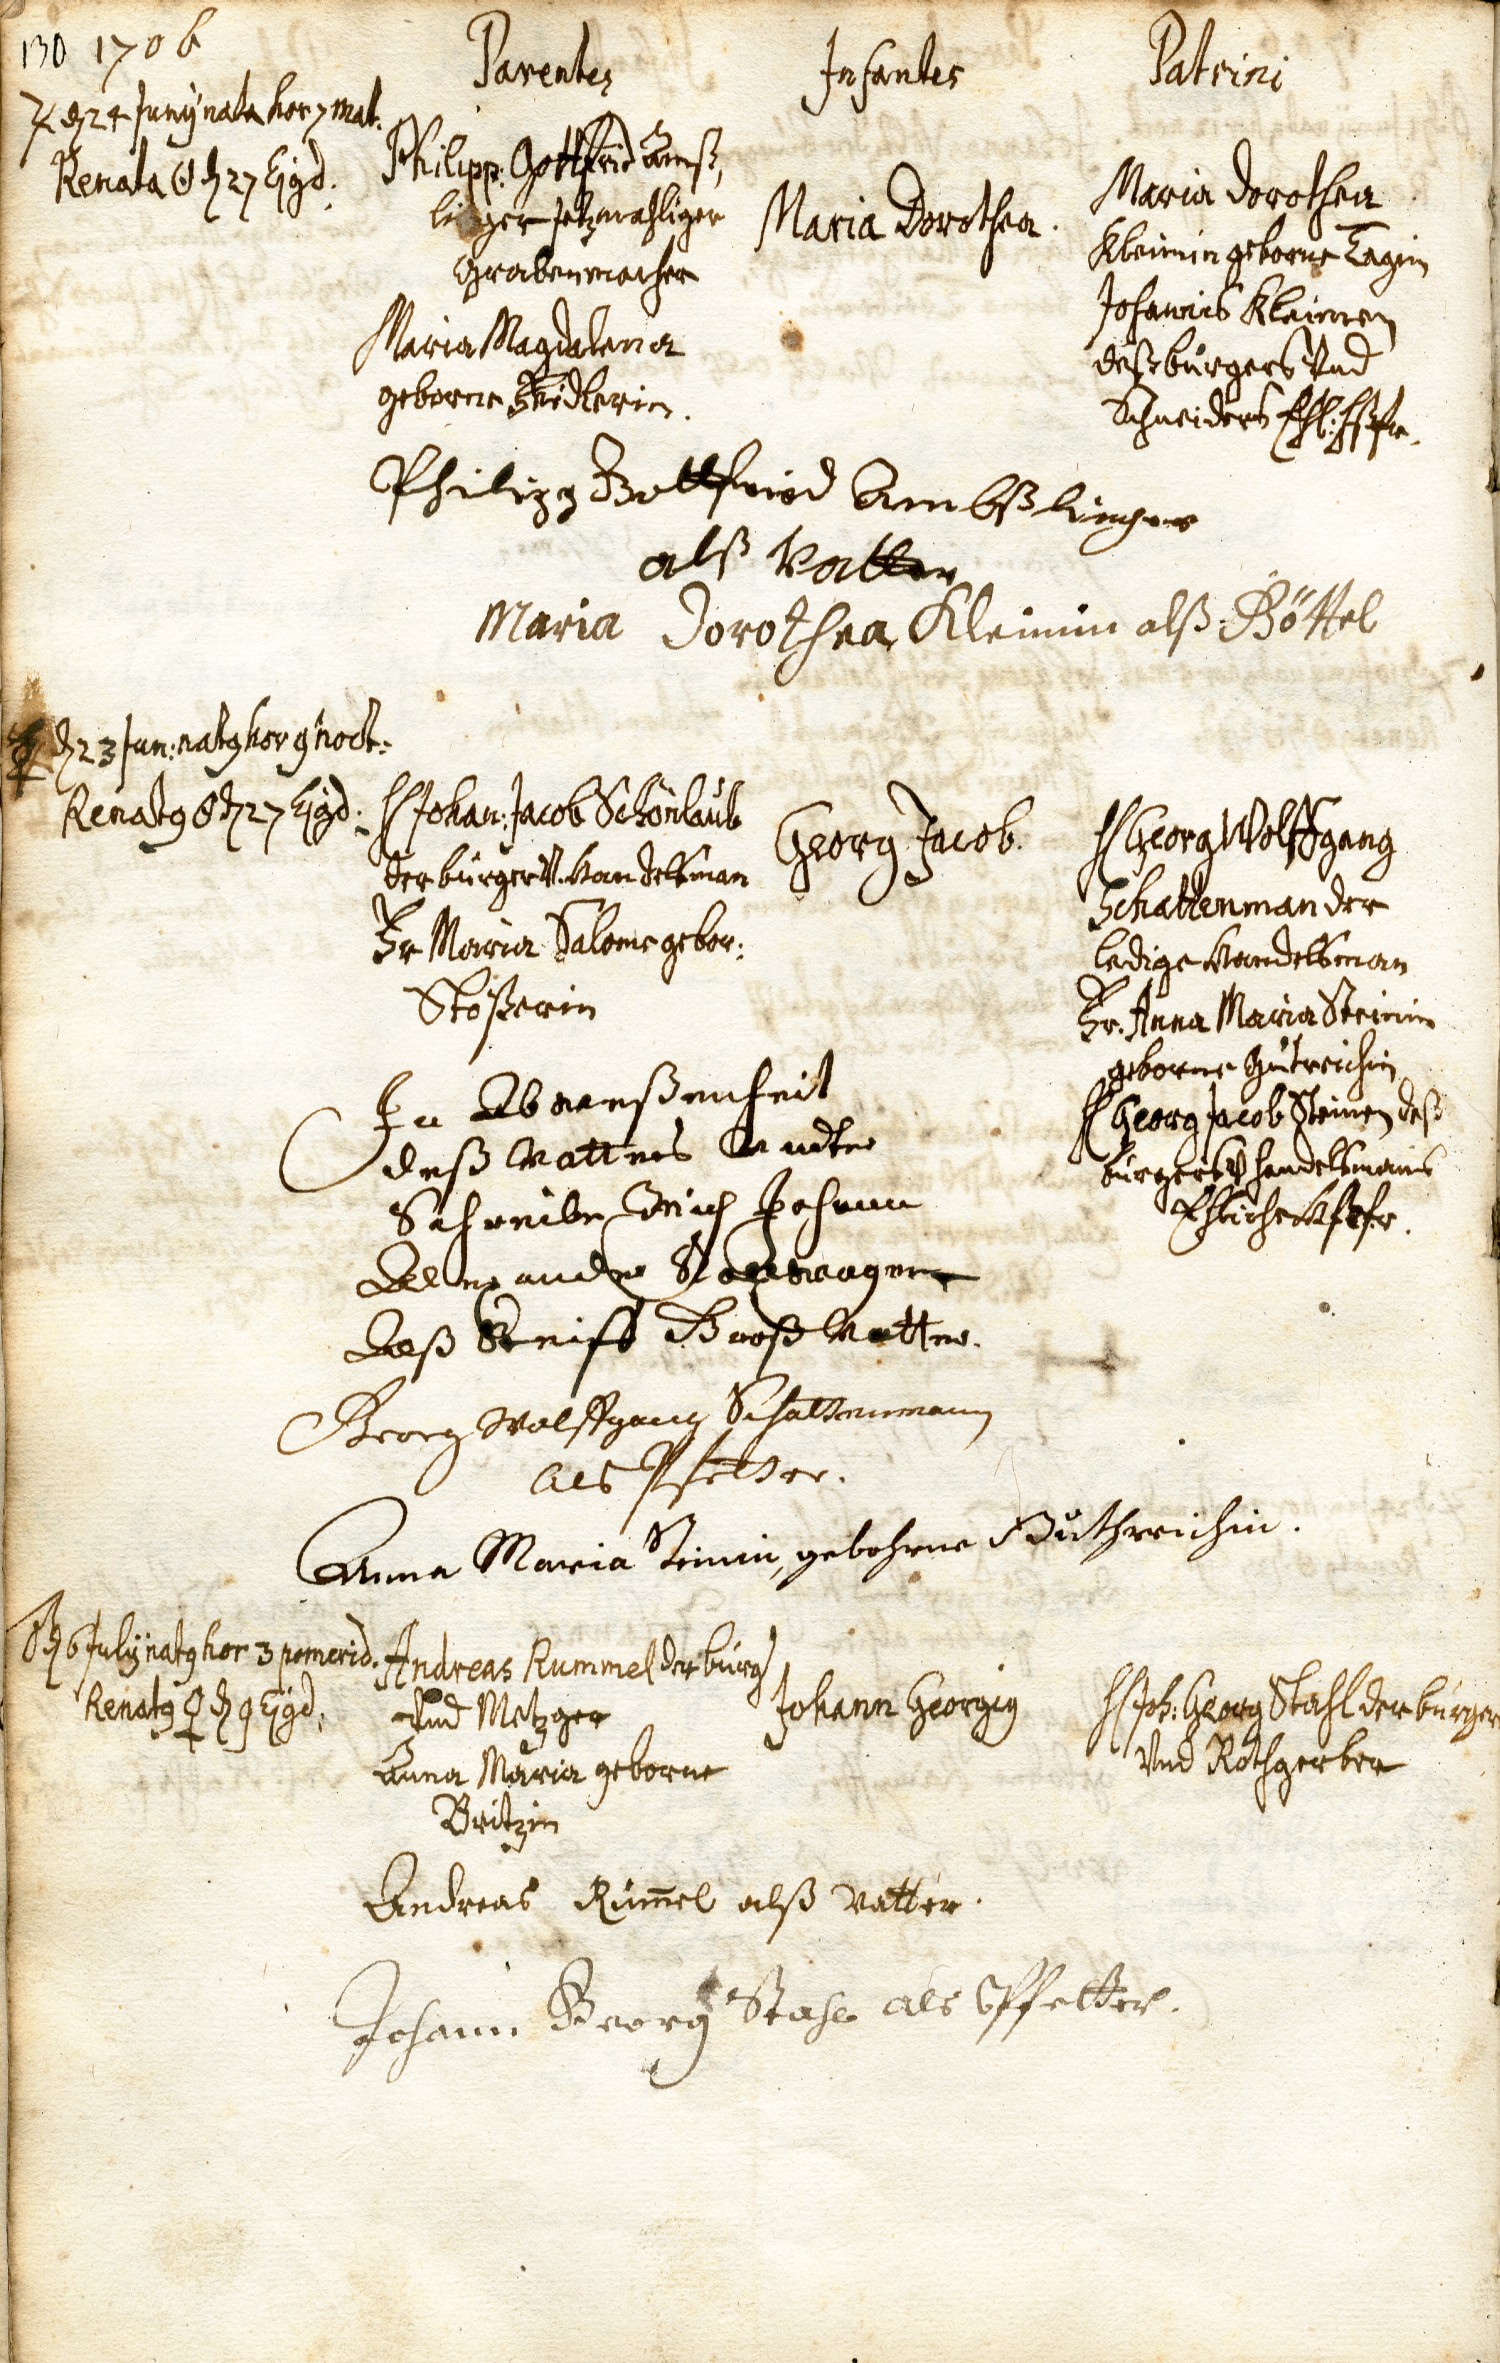 130 1706
Parentes
Infantes
Patrini
♃ d 24 Junÿ nata hor 7 mat.
Renata ☉ d 27 Ejgd.
Philipp: Gottfrid Amß,
linger jetzmahliger
Grabenmacher
Maria Magdalena
geborne Fidlerin.
Maria Dorothea.
Maria Dorothea
Kleinin geborne
Johannis Kleinen
deß burgers Vnd
Schneiders Ehl: hßfr.
Philipp Gottfried Ambßlinger
alß Vatter
Maria Dorothea Kleinin alß Göttel
d 23 Jun: nat9 hor 9 noct:
Renat9 d 27 Ejgd.
H Johan: Jacob Schönlaub
der burger V. Handelßman
Fr Maria Salome gebor:
Stößerin
Georg Jacob.
H Georg Wolffgang
Schattenman der
ledige Handelßman
Fr. Anna Maria Steinin
geborne Gutreichin
H Georg Jacob Steinen deß
burgers V handelsmans
Ehliche Hßfr.
In Abweßenheit
deß Vatters
Schreibe Mich Johann
Alexander
Alß Groß Vatter.
Georg Wolffgang Schattenmann
als Pfetter.
Anna Maria Steinin, gebohrne Guthreichin.
d 6 Julÿ nat9 hor 3 pomerid.
Renat9 ♀ d 9 Ejgd.
Andreas Rummel der burg
Vnd Metzger
Anna Maria geborne
Britzin
Johann Georgig
H Joh: Georg Stahl der burger
Vnd Rothgerber
Andreas Rum̄el alß Vatter.
Johann Georg Stahl als Pfetter.